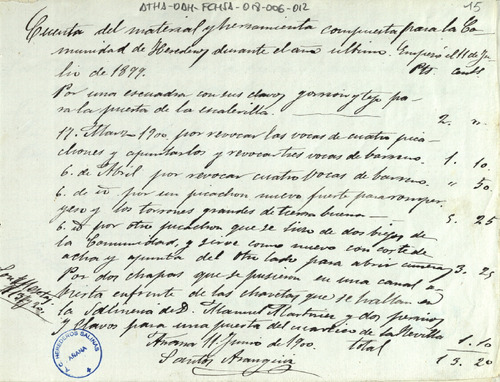 ATHA-DAH-FCHSA-018-006-012
15
Cuenta del material y herramienta compuesta para la Co-
munidad de Herederos durante el año ultimo. Empezó el 11 de Ju-
lio de 1899. Pts cents
Por una escuadra con sus clavos gorron y tejo pa-
ra la puerta de la escalerilla. 2. "
17. Marzo 1900 por revocar las vocas de cuatro pica-
chones y apuntarlos y revocar tres vocas de barreno. 1. 10
6. de Abril por revocar cuatro vocas de barreno. " 50
6. de id por un picachon nuevo fuerte para romper
yeso y los torrones grandes de tierra buena 5. 25
6. id por otro picachon que se hizo de dos biejos de
la Comunidad, y sirve como nuevo con corte de
acha y apunta del otro lado para abrir 3. 25
Por dos chapas que se pusieron en una canal
puesta enfrente de las chancas que se hallan en
la Salinera de D. Manuel Martinez y dos pernios
y clavos para una puerta del cuartico de la Revilla 1. 10
Añana 11 junio de 1900. total 13. 20
Santos Aranguiz
C. HEREDEROS SALINAS
AÑANA